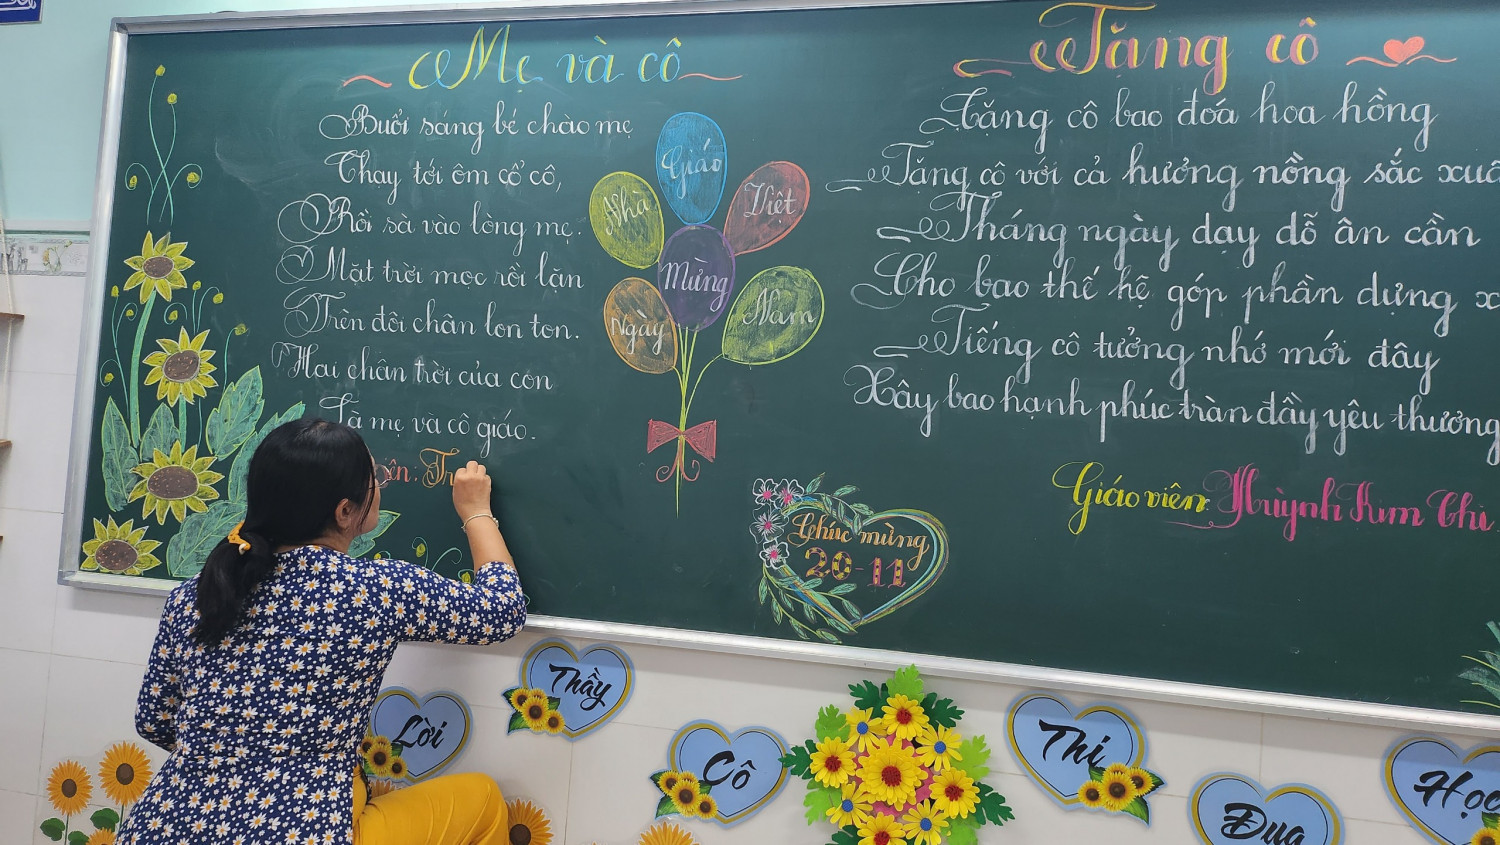 Mẹ và cô
Buổi sáng bé chào mẹ
Chạy tới ôm cổ cô,
Rồi sà vào lòng mẹ.
Mặt trời mọc rồi lặn
Trên đôi chân lon ton.
Hai chân trời của con
Là mẹ và cô giáo.
ên: Tr
Mừng
Ngày
Nhà
Giáo
Việt
Nam
Chúc mừng
20-11
Tặng cô
Tặng cô bao đoá hoa hồng
Tặng cô với cả hương nồng sắc xuâ
Tháng ngày dạy dỗ ân cần
Cho bao thế hệ góp phần dựng x
Tiếng cô tưởng nhớ mới đây
Xây bao hạnh phúc tràn đầy yêu thương
Giáo viên: Huỳnh Kim Chi
Lời
Thầy
Cô
Thi
Đua
Học